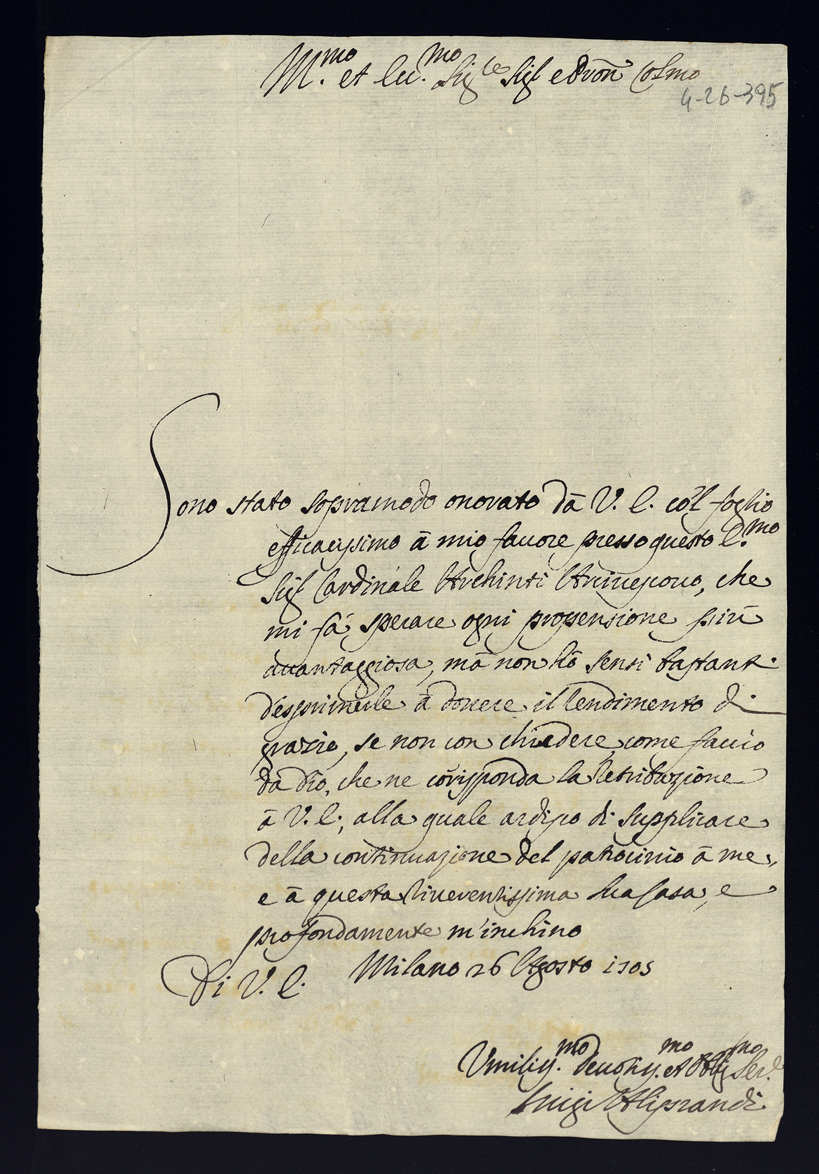 Ill.mo et Ecc.mo Sig.re Sig.r e Pron Col.mo
4-26-395
Sono stato sopramodo onorato dà V. E. co'l foglio
efficacissimo à mio favore presso questo E.mo
Sig.r Cardinale Archinti Arcivescovo, che
mi fà sperare ogni propensione più
avantaggiosa, mà non hò sensi bastanti
d'esprimerle à dovere il rendimento di
grazie, se non con chiedere, come faccio
da Dio, che ne corrisponda la Retribuzione
à V. E., alla quale ardisco di supplicare
della continuazione del patrocinio à me,
e à questa Riverentissima sua Casa, e
profondamente m'inchino
Di V. E. Milano 26 Agosto 1705
Umiliss.mo Devotiss.mo et Obblig.mo Ser.e
Luigi Aliprandi